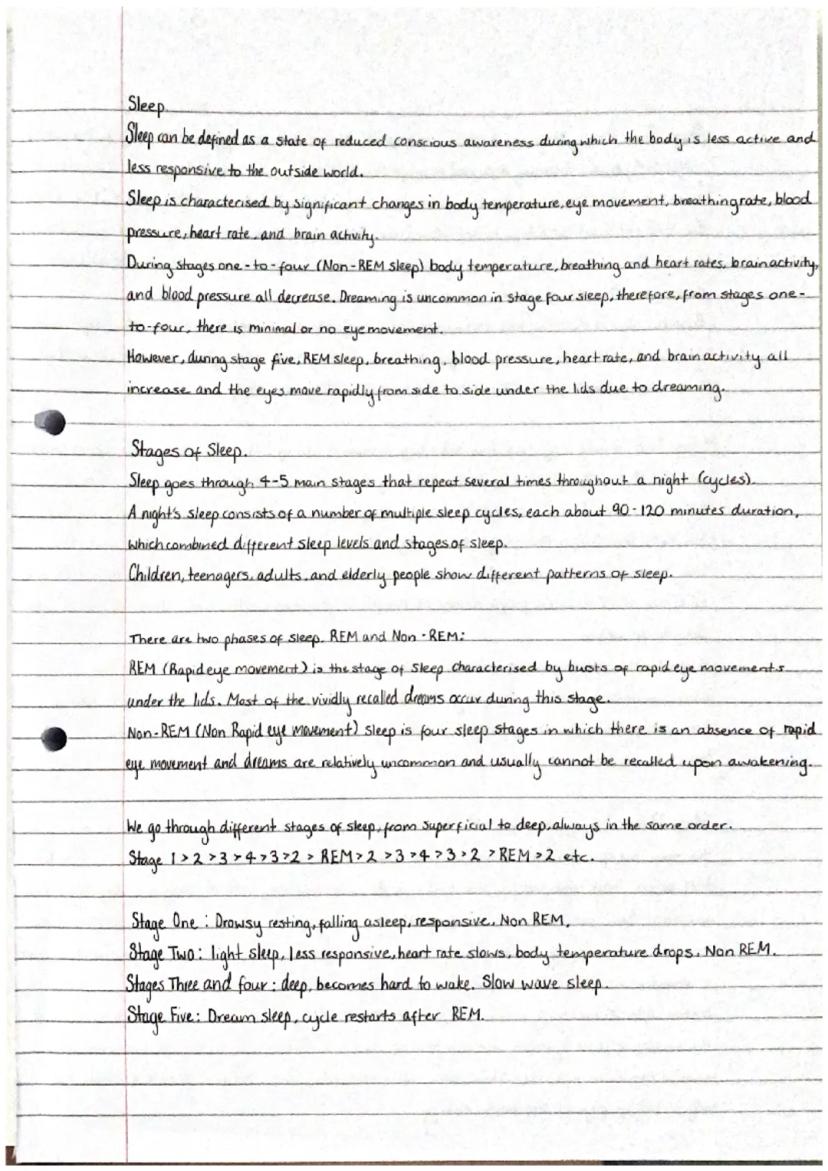 Sleep.
Sleep can be defined as a state of reduced conscious awareness during which the body is less active and
less responsive to the outside world.
Sleep is characterised by significant changes in body temperature, eye movement, breathing rate, blood
pressure, heart rate, and brain activity.
During stages one-to-four (Non-REM sleep) body temperature, breathing and heart rates, brain activity,
and blood pressure all decrease. Dreaming is uncommon in stage four sleep, therefore, from stages one-
to-four, there is minimal or no eye movement.
However, during stage five, REM sleep, breathing, blood pressure, heart rate, and brain activity all
increase and the eyes move rapidly from side to side under the lids due to dreaming.
Stages of Sleep.
Sleep goes through 4-5 main stages that repeat several times throughout a night (cycles).
A night's sleep consists of a number of multiple sleep cycles, each about 90-120 minutes duration,
which combined different sleep levels and stages of sleep.
Children, teenagers, adults, and elderly people show different patterns of sleep.
There are two phases of sleep. REM and Non-REM:
REM (Rapid eye movement) is the stage of sleep characterised by busts of rapid eye movements
under the lids. Most of the vividly recalled dreams occur during this stage.
Non-REM (Non Rapid eye movement) sleep is four sleep stages in which there is an absence of rapid
eye movement and dreams are relatively uncommon and usually cannot be recalled upon awakening.
We go through different stages of sleep, from superficial to deep, always in the same order.
Stage 1>2>3>4>3>2> REM>2>3>4>3>2>REM>2 etc.
Stage One: Drowsy resting, falling asleep, responsive, Non REM,
Stage Two: light sleep, less responsive, heart rate slows, body temperature drops, Non REM.
Stages Three and four: deep, becomes hard to wake. Slow wave sleep.
Stage Five: Dream sleep, cycle restarts after REM.